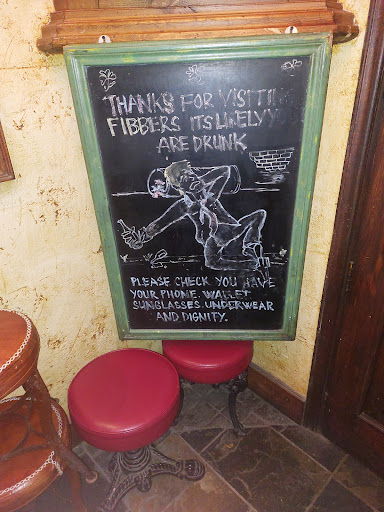 THANKS FOR VISITIN
FIBBERS ITS LIKELY Y
ARE DRUNK
PLEASE CHECK YOU HAVE
YOUR PHONE, WALLET
SUNGLASSES, UNDERWEAR
AND DIGNITY.